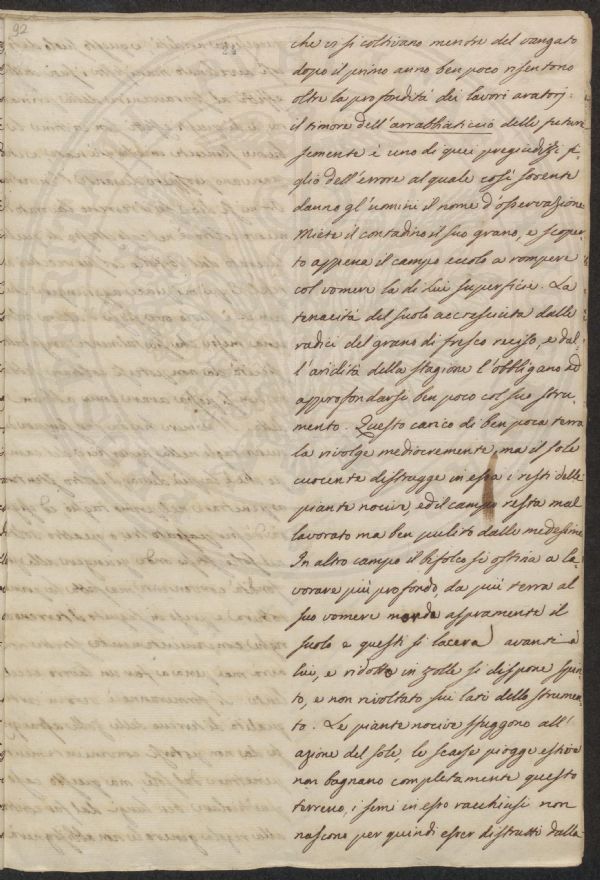 92
che vi si coltivano mentre del vangato
dopo il primo anno ben poco risentono
oltre la profondità dei lavori aratorj:
il timore dell'arrabbiaticcio delle future
semente è uno di quei pregiudizj fi-
glio dell'errore al quale così sovente
danno gl'uomini il nome d'osservazione
Miete il contadino il suo grano, e scoper-
to appena il campo eccolo a rompere
col vomere la di lui superficie. La
tenacità del suolo accresciuta dalle
radici del grano di fresco reciso, e dal-
l'aridità della stagione l'obbligano ad
approfondarsi ben poco col suo stru-
mento. Questo carico di ben poca terra
la rivolge mediocremente, ma il sole
cuocente distrugge in essa i resti delle
piante nocive ed il campo resta mal
lavorato ma ben pulito dalle medesime
In altro campo il bifolco si ostina a la-
vorare più profondo, da più terra al
suo vomere morde aspramente il
suolo e questi si lacera avanti a
lui, e ridotto in zolle si dispone spin-
to, e non rivoltato sui lati dello strumen-
to. Le piante nocive sfuggono all'
azione del sole, le scarse piogge estive
non bagnano completamente questo
terreno, i semi in esso racchiusi non
nascono per quindi esser distrutti dalla